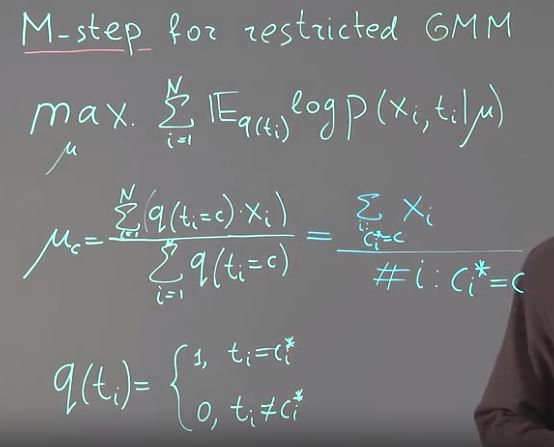 M-step for restricted GMM
max_μ. Σ_{i=1}^{N} 𝔼_{q(t_i)} log p(x_i, t_i | μ)
μ_c = Σ_{i=1}^{N} (q(t_i=c)·x_i) / Σ_{i=1} q(t_i=c) = Σ_{i: c_i^*=c} x_i / # i : c_i^*=c
q(t_i) = { 1, t_i=c_i^*
0, t_i≠c_i^*